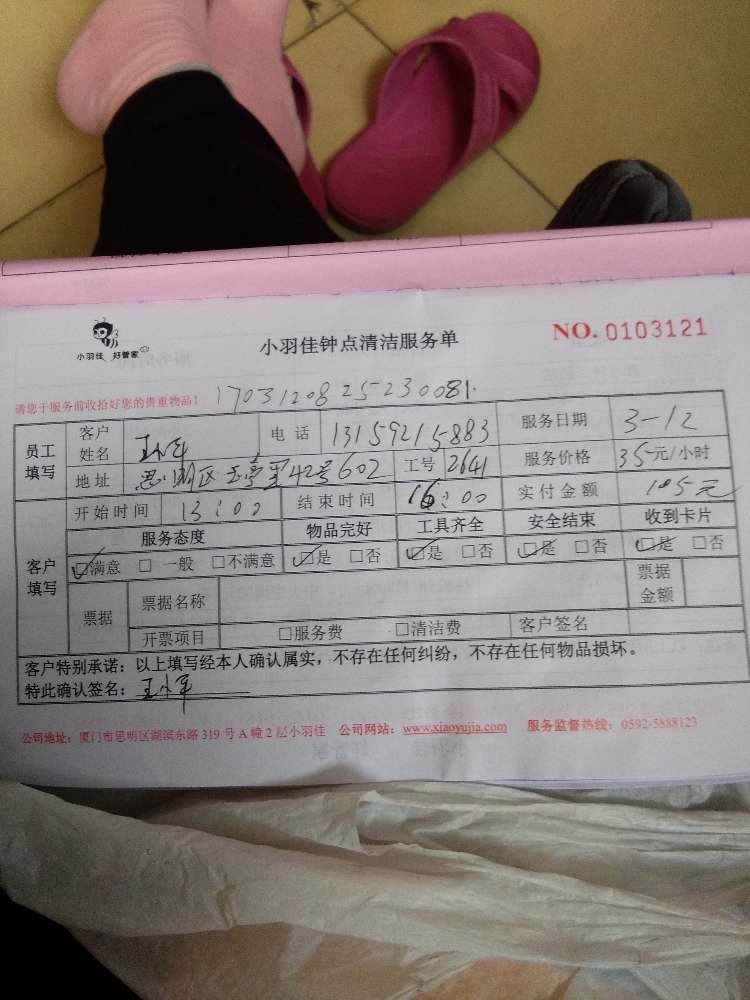 小羽佳 好管家
小羽佳钟点清洁服务单
NO. 0103121
请您于服务前收拾好您的贵重物品!
1703120825230081.
员工填写 客户姓名 王小军 电话 13159215883 服务日期 3-12
地址 思明区 42号602 工号 2641 服务价格 35元/小时
客户填写 开始时间 13:00 结束时间 16:00 实付金额 105元
服务态度 物品完好 工具齐全 安全结束 收到卡片
☑满意 □ 一般 □不满意 ☑是 □否 ☑是 □否 ☑是 □否 ☑是 □否
票据 票据名称 票据金额
开票项目 □服务费 □清洁费 客户签名
客户特别承诺:以上填写经本人确认属实,不存在任何纠纷,不存在任何物品损坏。
特此确认签名:王小军
公司地址:厦门市思明区湖滨东路 319 号 A 幢 2 层小羽佳 公司网站:www.xiaoyujia.com 服务监督热线:0592-5888123